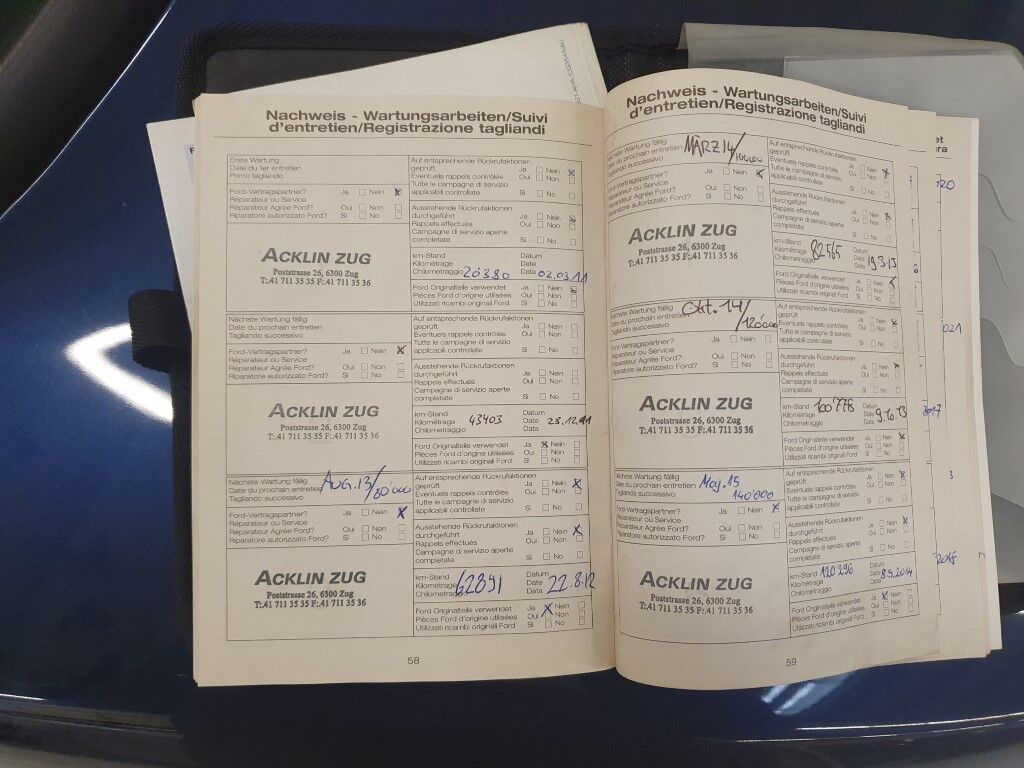 Nachweis - Wartungsarbeiten/Suivi
d'entretien/Registrazione tagliandi
Erste Wartung
Date du 1er entretien
Primo tagliando
Ford-Vertragspartner? Ja Nein
Réparateur ou Service
Réparateur Agrée Ford? Oui Non
Riparatore autorizzato Ford? Si No
ACKLIN ZUG
Poststrasse 26, 6300 Zug
T:.41 711 35 35 F:.41 711 35 36
Auf entsprechende Rückrufaktionen
geprüft Ja Nein
Eventuels rappels contrôlés Oui Non
Tutte le campagne di servizio
applicabili controllate Si No
Ausstehende Rückrufaktionen
durchgeführt Ja Nein
Rappels effectués Oui Non
Campagne di servizio aperte
completate Si No
km-Stand Datum
Kilométrage Date
Chilometraggio 20380 Data 02.03.11
Ford Originalteile verwendet Ja Nein
Pièces Ford d'origine utilisées Oui Non
Utilizzati ricambi originali Ford Si No
Nächste Wartung fällig
Date du prochain entretien
Tagliando successivo
Ford-Vertragspartner? Ja Nein
Réparateur ou Service
Réparateur Agrée Ford? Oui Non
Riparatore autorizzato Ford? Si No
ACKLIN ZUG
Poststrasse 26, 6300 Zug
T:.41 711 35 35 F:.41 711 35 36
Auf entsprechende Rückrufaktionen
geprüft Ja Nein
Eventuels rappels contrôlés Oui Non
Tutte le campagne di servizio
applicabili controllate Si No
Ausstehende Rückrufaktionen
durchgeführt Ja Nein
Rappels effectués Oui Non
Campagne di servizio aperte
completate Si No
km-Stand Datum
Kilométrage 43403 Date 23.12.11
Chilometraggio Data
Ford Originalteile verwendet Ja Nein
Pièces Ford d'origine utilisées Oui Non
Utilizzati ricambi originali Ford Si No
Nächste Wartung fällig
Date du prochain entretien AUG. 13/80000
Tagliando successivo
Ford-Vertragspartner? Ja Nein
Réparateur ou Service
Réparateur Agrée Ford? Oui Non
Riparatore autorizzato Ford? Si No
ACKLIN ZUG
Poststrasse 26, 6300 Zug
T:.41 711 35 35 F:.41 711 35 36
Auf entsprechende Rückrufaktionen
geprüft Ja Nein
Eventuels rappels contrôlés Oui Non
Tutte le campagne di servizio
applicabili controllate Si No
Ausstehende Rückrufaktionen
durchgeführt Ja Nein
Rappels effectués Oui Non
Campagne di servizio aperte
completate Si No
km-Stand Datum
Kilométrage 62891 Date 22.8.12
Chilometraggio Data
Ford Originalteile verwendet Ja Nein
Pièces Ford d'origine utilisées Oui Non
Utilizzati ricambi originali Ford Si No
58
Nachweis - Wartungsarbeiten/Suivi
d'entretien/Registrazione tagliandi
Nächste Wartung fällig
Date du prochain entretien MÄRZ 14/100000
Tagliando successivo
Ford-Vertragspartner? Ja Nein
Réparateur ou Service
Réparateur Agrée Ford? Oui Non
Riparatore autorizzato Ford? Si No
ACKLIN ZUG
Poststrasse 26, 6300 Zug
T:.41 711 35 35 F:.41 711 35 36
Auf entsprechende Rückrufaktionen
geprüft Ja Nein
Eventuels rappels contrôlés Oui Non
Tutte le campagne di servizio
applicabili controllate Si No
Ausstehende Rückrufaktionen
durchgeführt Ja Nein
Rappels effectués Oui Non
Campagne di servizio aperte
completate Si No
km-Stand Datum
Kilométrage 82565 Date 19.3.13
Chilometraggio Data
Ford Originalteile verwendet Ja Nein
Pièces Ford d'origine utilisées Oui Non
Utilizzati ricambi originali Ford Si No
Nächste Wartung fällig
Date du prochain entretien Okt. 14/120'000
Tagliando successivo
Ford-Vertragspartner? Ja Nein
Réparateur ou Service
Réparateur Agrée Ford? Oui Non
Riparatore autorizzato Ford? Si No
ACKLIN ZUG
Poststrasse 26, 6300 Zug
T:.41 711 35 35 F:.41 711 35 36
Auf entsprechende Rückrufaktionen
geprüft Ja Nein
Eventuels rappels contrôlés Oui Non
Tutte le campagne di servizio
applicabili controllate Si No
Ausstehende Rückrufaktionen
durchgeführt Ja Nein
Rappels effectués Oui Non
Campagne di servizio aperte
completate Si No
km-Stand 100778 Datum
Kilométrage Date 9.10.13
Chilometraggio Data
Ford Originalteile verwendet Ja Nein
Pièces Ford d'origine utilisées Oui Non
Utilizzati ricambi originali Ford Si No
Nächste Wartung fällig
Date du prochain entretien May. 15
Tagliando successivo 140'000
Ford-Vertragspartner? Ja Nein
Réparateur ou Service
Réparateur Agrée Ford? Oui Non
Riparatore autorizzato Ford? Si No
ACKLIN ZUG
Poststrasse 26, 6300 Zug
T:.41 711 35 35 F:.41 711 35 36
Auf entsprechende Rückrufaktionen
geprüft Ja Nein
Eventuels rappels contrôlés Oui Non
Tutte le campagne di servizio
applicabili controllate Si No
Ausstehende Rückrufaktionen
durchgeführt Ja Nein
Rappels effectués Oui Non
Campagne di servizio aperte
completate Si No
km-Stand 120296 Datum
Kilométrage Date 8.5.2014
Chilometraggio Data
Ford Originalteile verwendet Ja Nein
Pièces Ford d'origine utilisées Oui Non
Utilizzati ricambi originali Ford Si No
59